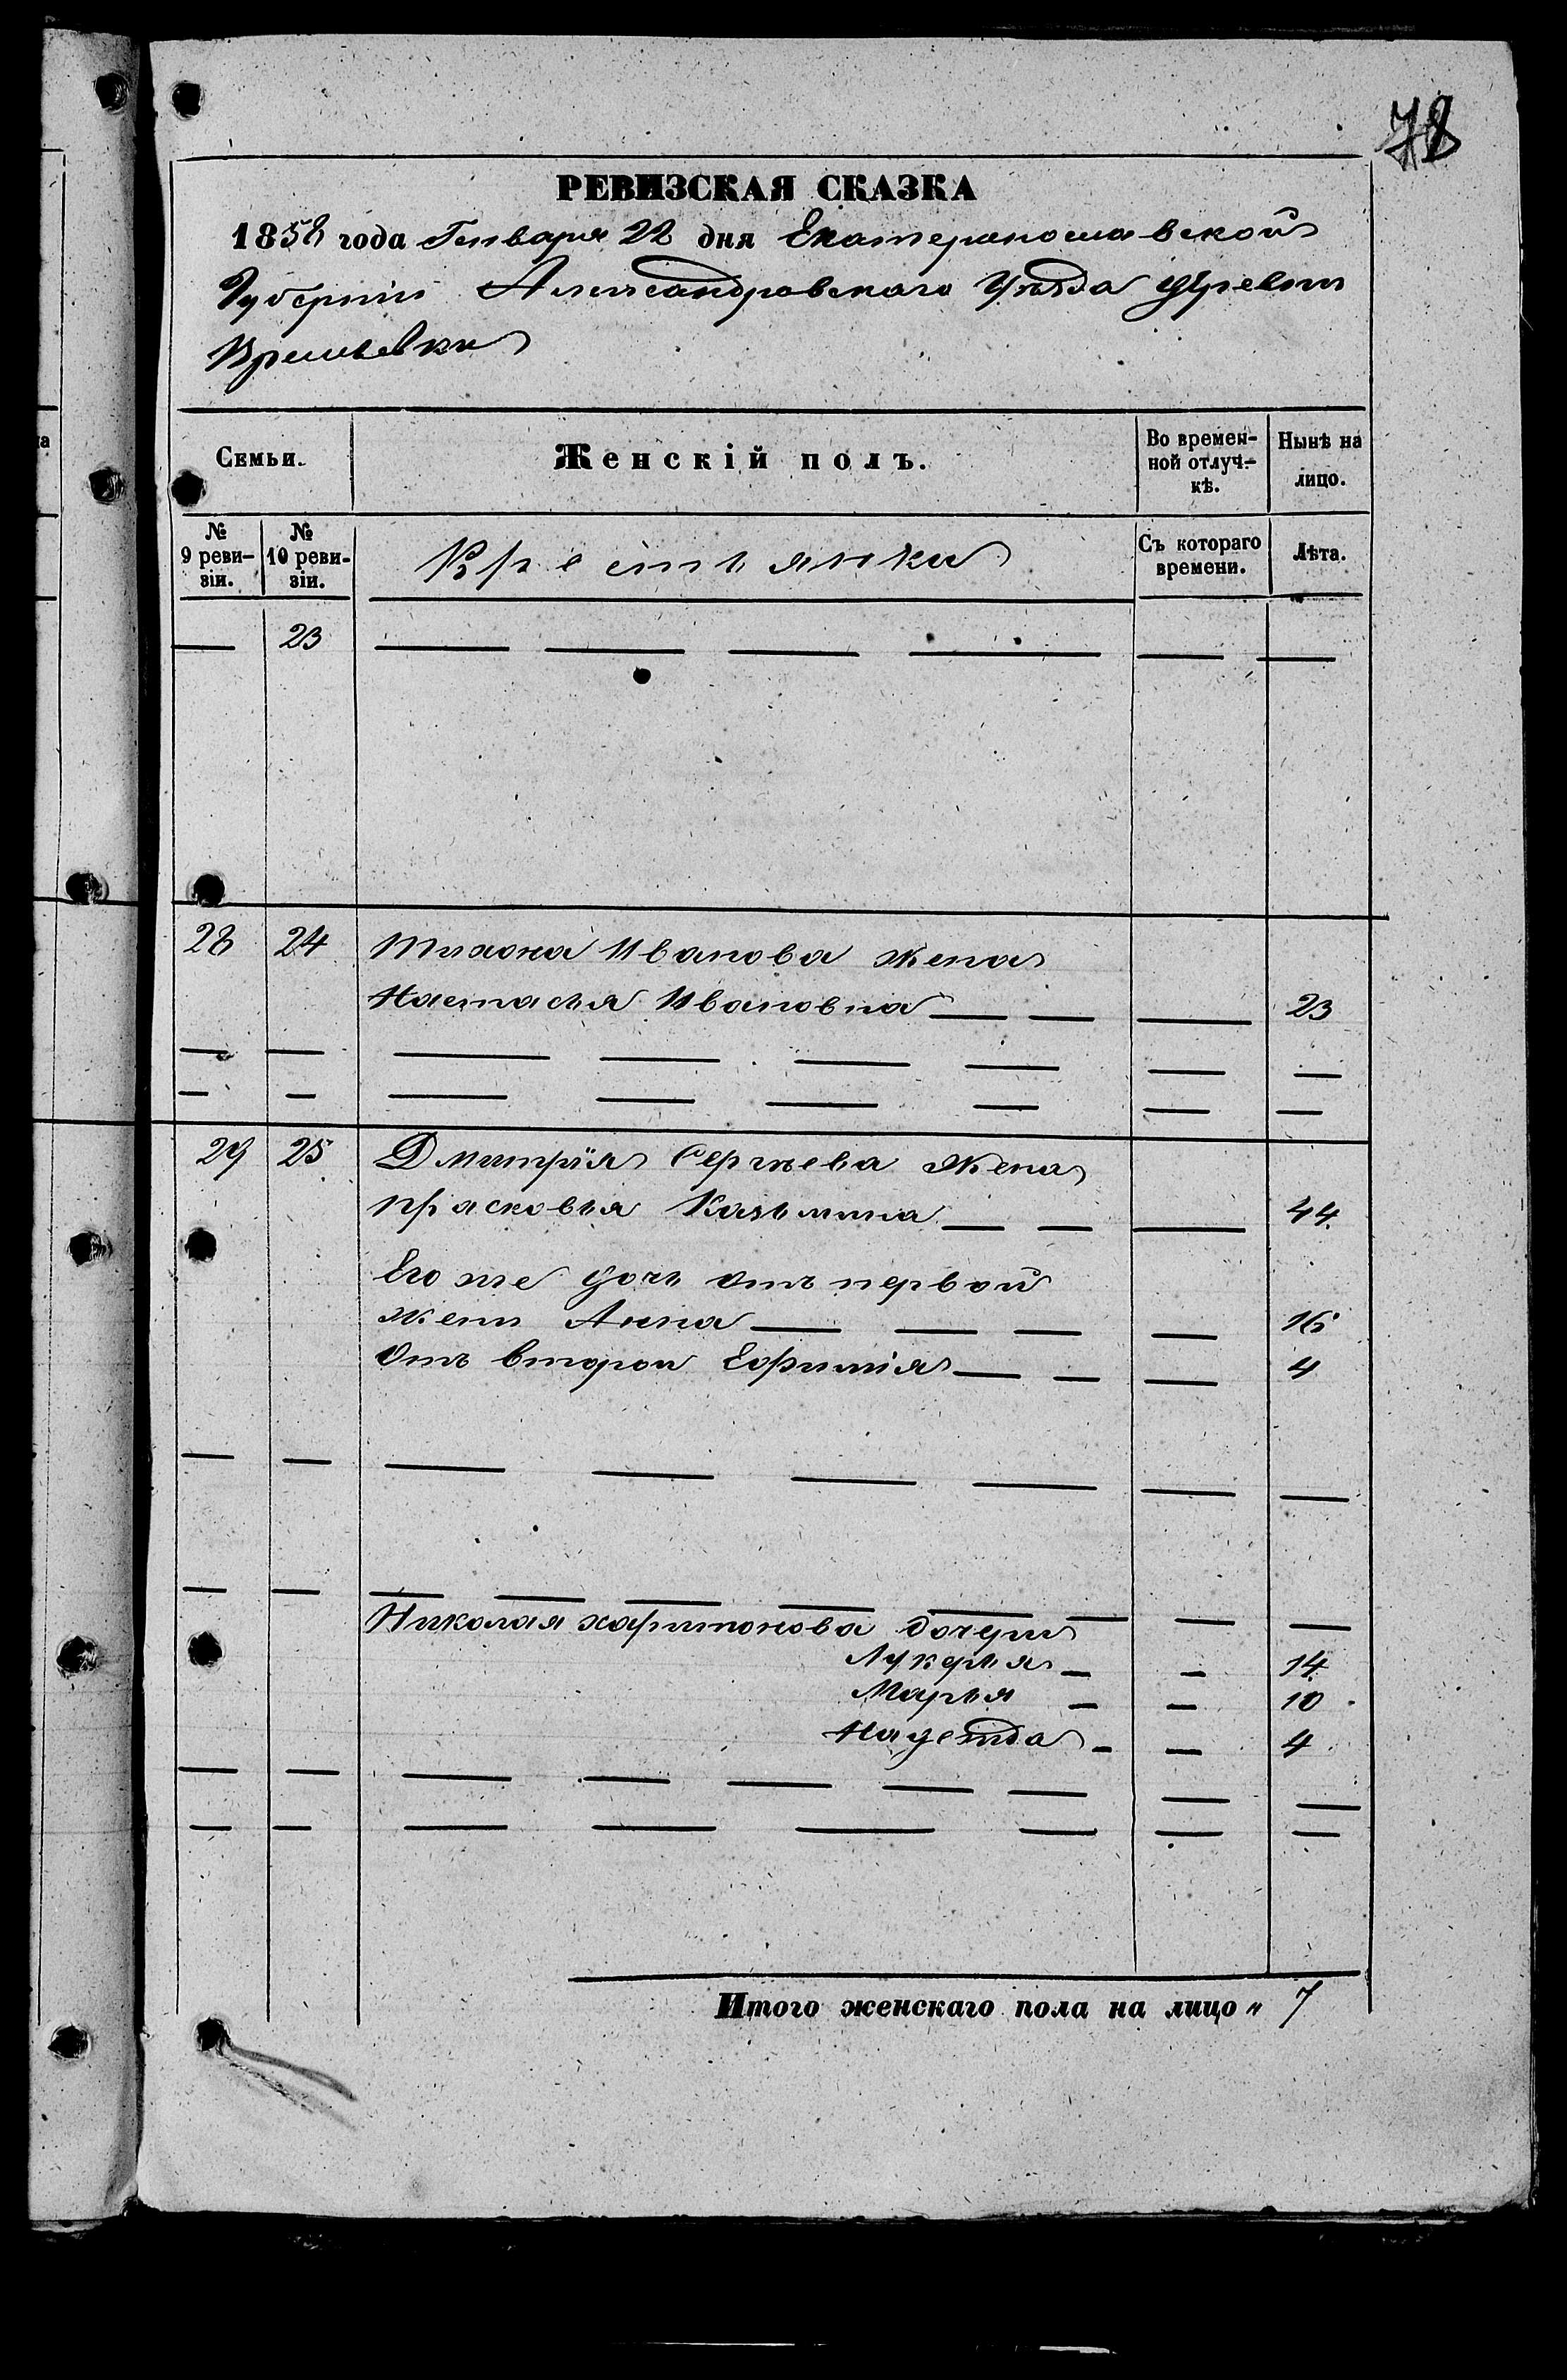 78
РЕВИЗСКАЯ СКАЗКА
1858 года Генваря 22 дня Екатеринославской
Губерніи Александровскаго Уѣзда Деревни
Времьевки
Семьи. Женскій полъ. Во времен- Нынѣ на
ной отлуч- лицо.
кѣ.
№ № Крестьянки Съ котораго Лѣта.
9 реви- 10 реви- времени.
зіи. зіи.
— 23 — — — — — —
28 24 Тихона Иванова жена
Настасья Ивановна — — — 23
— — — — — — — —
— — — — — — — —
29 25 Дмитрія Сергѣева жена
Прасковья Казьмина — — — 44
Его же дочь отъ первой
жены Анна — — — — 16
Отъ второй Ефимія — — — 4
— — — — — — — —
— — — — — — — — — —
Николая Харитонова дочери
Лукерья — — 14
Марья — — 10
Надежда — — 4
— — — — — — — — —
— — — — — — — —
Итого женскаго пола на лицо „ 7